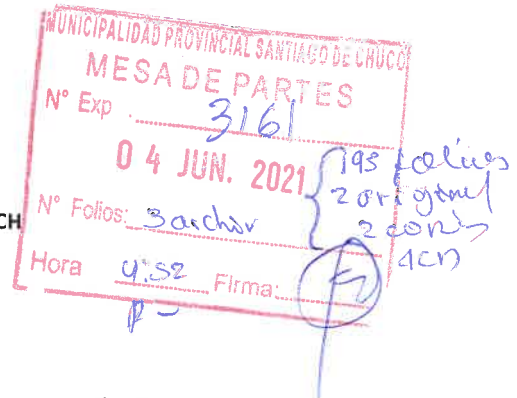 MUNICIPALIDAD PROVINCIAL SANTIAGO DE CHUCO
MESA DE PARTES
N° Exp 3161
04 JUN. 2021
195 folios
2 original
N° Folios: 3 archor
2 copias
CH
Hora 4:52 Firma: